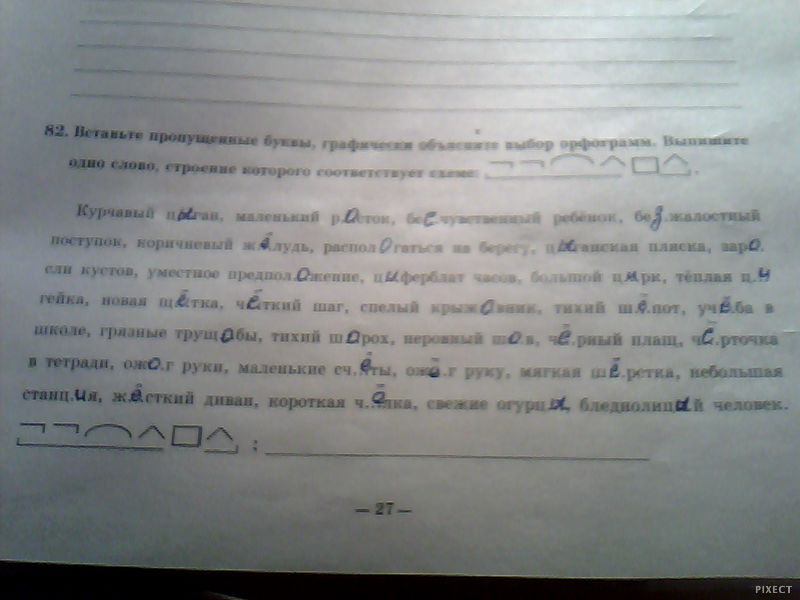 82. Вставьте пропущенные буквы, графически объясните выбор орфограмм. Выпишите
одно слово, строение которого соответствует схеме: .
Курчавый цыган, маленький р.Осток, бес.чувственный ребёнок, без.жалостный
поступок, коричневый жёлудь, располОгаться на берегу, цыганская пляска, заро.
сли кустов, уместное предпол.ожение, циферблат часов, большой цирк, тёплая ц.и
гейка, новая щётка, чёткий шаг, спелый крыжовник, тихий шё.пот, учё.ба в
школе, грязные трущобы, тихий шорох, неровный шов, чё.рный плащ, чё.рточка
в тетради, ожо.г руки, маленькие сч.ёты, ожё.г руку, мягкая шё.рстка, небольшая
станц.ия, жёсткий диван, короткая ч.ёлка, свежие огурцы, бледнолицый человек.
;
– 27 –
PIXECT